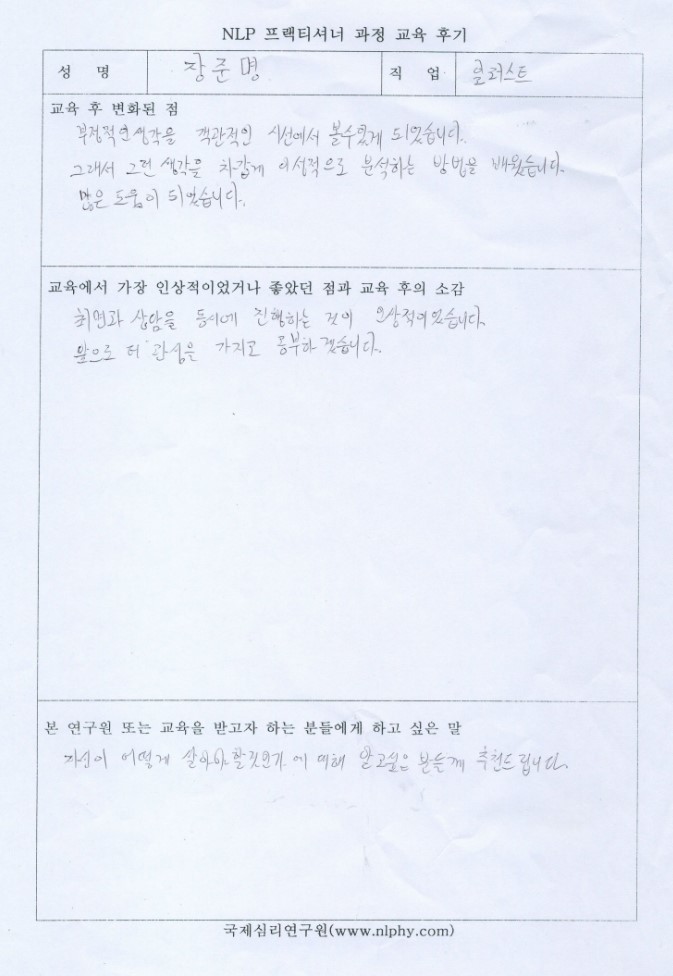 NLP 프랙티셔너 과정 교육 후기
성 명 장준명 직 업 일러스트
교육 후 변화된 점
부정적인생각을 객관적인 시선에서 볼수있게 되었습니다.
그래서 그런 생각을 차갑게 이성적으로 분석하는 방법을 배웠습니다.
많은 도움이 되었습니다.
교육에서 가장 인상적이었거나 좋았던 점과 교육 후의 소감
최면과 상담을 동시에 진행하는 것이 인상적이었습니다.
앞으로 더 관심을 가지고 공부하겠습니다.
본 연구원 또는 교육을 받고자 하는 분들에게 하고 싶은 말
자신이 어떻게 살아야 할것인가 에 대해 알고싶은 분들께 추천드립니다.
국제심리연구원(www.nlphy.com)